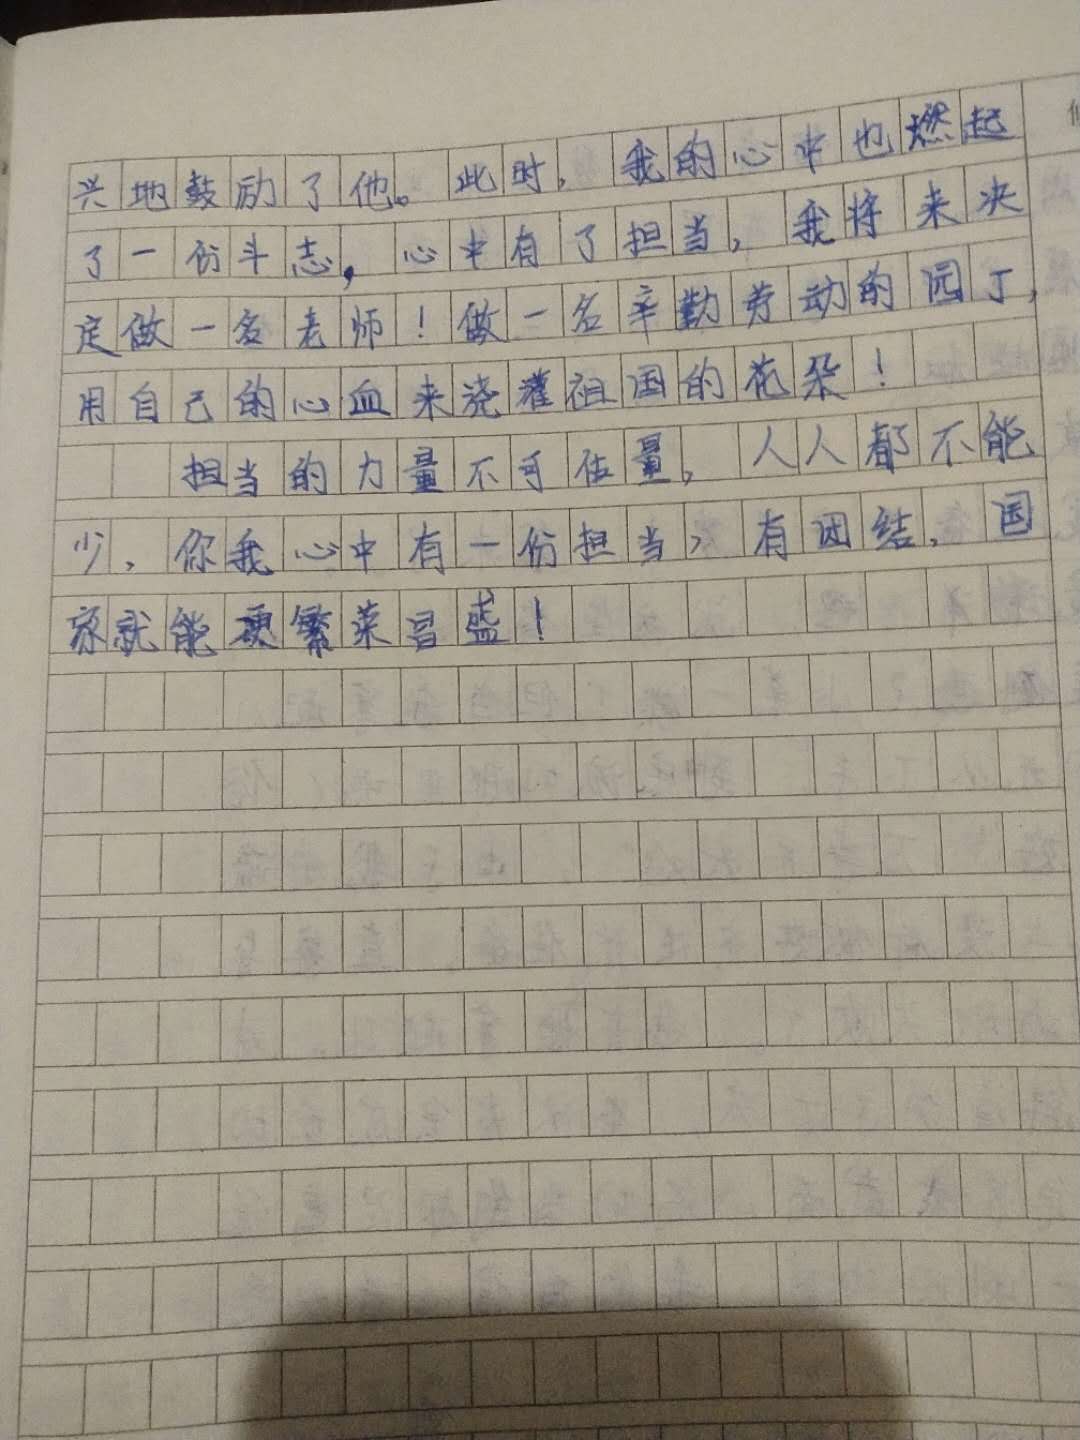 兴地鼓励了他。此时，我的心中也燃起
了一份斗志，心中有了担当，我将来决
定做一名老师！做一名辛勤劳动的园丁，
用自己的心血来浇灌祖国的花朵！
担当的力量不可估量，人人都不能
少，你我心中有一份担当，有团结，国
家就能更繁荣昌盛！